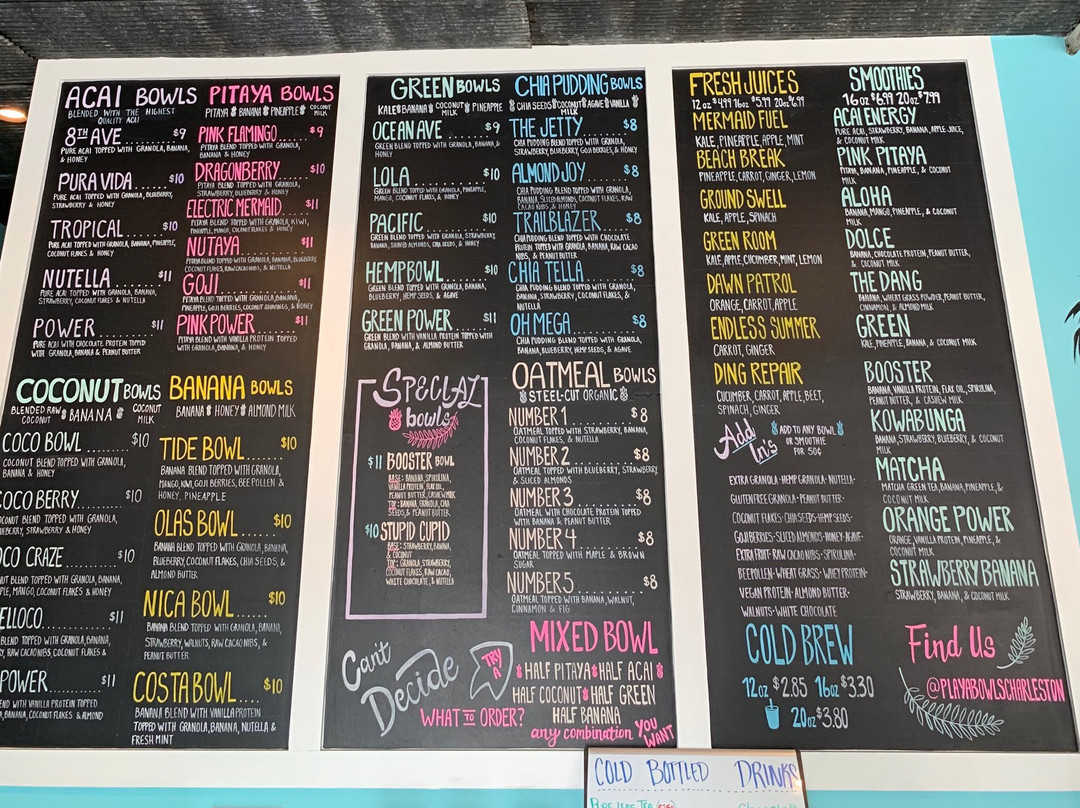 ACAI BOWLS
BLENDED WITH THE HIGHEST
QUALITY ACAI
8TH AVE $9
PURE ACAI TOPPED WITH GRANOLA, BANANA,
& HONEY
PURA VIDA $10
PURE ACAI TOPPED WITH GRANOLA, BLUEBERRY,
STRAWBERRY & HONEY
TROPICAL $10
PURE ACAI TOPPED WITH GRANOLA, BANANA, PINEAPPLE,
COCONUT FLAKES & HONEY
NUTELLA $11
PURE ACAI TOPPED WITH GRANOLA, BANANA,
STRAWBERRY, COCONUT FLAKES & NUTELLA
POWER $11
PURE ACAI WITH CHOCOLATE PROTEIN TOPPED
WITH GRANOLA, BANANA & PEANUT BUTTER
PITAYA BOWLS
PITAYA BANANA PINEAPPLE COCONUT MILK
PINK FLAMINGO $9
PITAYA BLEND TOPPED WITH GRANOLA,
BANANA & HONEY
DRAGONBERRY $10
PITAYA BLEND TOPPED WITH GRANOLA,
STRAWBERRY, BLUEBERRY & HONEY
ELECTRIC MERMAID $11
PITAYA BLEND TOPPED WITH GRANOLA, KIWI,
PINEAPPLE, MANGO, COCONUT FLAKES & HONEY
NUTAYA $11
PITAYA BLEND TOPPED WITH GRANOLA, BANANA, BLUEBERRY,
COCONUT FLAKES, RAW CACAO NIBS, & NUTELLA
GOJI $11
PITAYA BLEND TOPPED WITH GRANOLA, BANANA,
PINEAPPLE, GOJI BERRIES, COCONUT SHAVINGS, & HONEY
PINK POWER $11
PITAYA BLEND WITH VANILLA PROTEIN TOPPED
WITH GRANOLA, BANANA, & HONEY
COCONUT BOWLS
BLENDED RAW COCONUT BANANA COCONUT MILK
COCO BOWL $10
COCONUT BLEND TOPPED WITH GRANOLA,
BANANA & HONEY
OCO BERRY $10
ONUT BLEND TOPPED WITH GRANOLA,
UEBERRY, STRAWBERRY & HONEY
CO CRAZE $10
NUT BLEND TOPPED WITH GRANOLA, BANANA,
PLE, MANGO, COCONUT FLAKES & HONEY
ELLOCO $11
BLEND TOPPED WITH GRANOLA, BANANA,
Y, RAW CACAO NIBS, COCONUT FLAKES &
POWER $11
END WITH VANILLA PROTEIN TOPPED
A, BANANA, COCONUT FLAKES & ALMOND
BANANA BOWLS
BANANA HONEY ALMOND MILK
TIDE BOWL $10
BANANA BLEND TOPPED WITH GRANOLA,
MANGO, KIWI, GOJI BERRIES, BEE POLLEN &
HONEY, PINEAPPLE
OLAS BOWL $10
BANANA BLEND TOPPED WITH GRANOLA, BANANA,
BLUEBERRY, COCONUT FLAKES, CHIA SEEDS, &
ALMOND BUTTER
NICA BOWL $10
BANANA BLEND TOPPED WITH GRANOLA, BANANA,
STRAWBERRY, WALNUTS, RAW CACAO NIBS, &
PEANUT BUTTER
COSTA BOWL $10
BANANA BLEND WITH VANILLA PROTEIN
TOPPED WITH GRANOLA, BANANA, NUTELLA &
FRESH MINT
GREEN BOWLS
KALE BANANA COCONUT MILK PINEAPPLE
OCEAN AVE $9
GREEN BLEND TOPPED WITH GRANOLA, BANANA, &
HONEY
LOLA $10
GREEN BLEND TOPPED WITH GRANOLA, PINEAPPLE,
MANGO, COCONUT FLAKES, & HONEY
PACIFIC $10
GREEN BLEND TOPPED WITH GRANOLA, STRAWBERRY
BANANA, SHAVED ALMONDS, CHIA SEEDS, & HONEY
HEMP BOWL $10
GREEN BLEND TOPPED WITH GRANOLA, BANANA,
BLUEBERRY, HEMP SEEDS, & AGAVE
GREEN POWER $11
GREEN BLEND WITH VANILLA PROTEIN TOPPED WITH
GRANOLA, BANANA, & ALMOND BUTTER
CHIA PUDDING BOWLS
CHIA SEEDS COCONUT MILK AGAVE VANILLA
THE JETTY $8
CHIA PUDDING BLEND TOPPED WITH GRANOLA,
STRAWBERRY, BLUEBERRY, GOJI BERRIES, & HONEY
ALMOND JOY $8
CHIA PUDDING BLEND TOPPED WITH GRANOLA,
BANANA, SLICED ALMONDS, COCONUT FLAKES, RAW
CACAO NIBS, & HONEY
TRAILBLAZER $8
CHIA PUDDING BLEND TOPPED WITH CHOCOLATE
PROTEIN TOPPED WITH GRANOLA, BANANA, RAW CACAO
NIBS, & PEANUT BUTTER
CHIA TELLA $8
CHIA PUDDING BLEND TOPPED WITH GRANOLA,
BANANA, STRAWBERRY, COCONUT FLAKES, &
NUTELLA
OH MEGA $8
CHIA PUDDING BLEND TOPPED WITH GRANOLA,
BANANA, BLUEBERRY, HEMP SEEDS, & AGAVE
SPECIAL
bowls
$11 BOOSTER BOWL
BASE: BANANA, SPIRULINA,
VANILLA PROTEIN, FLAX OIL,
PEANUT BUTTER, CASHEW MILK
TOP: BANANA, GRANOLA, CHIA
SEEDS, & PEANUT BUTTER
$10 STUPID CUPID
BASE: STRAWBERRY, BANANA,
& COCONUT
TOP: GRANOLA, STRAWBERRY,
COCONUT FLAKES, RAW CACAO,
WHITE CHOCOLATE, & NUTELLA
OATMEAL BOWLS
STEEL-CUT ORGANIC
NUMBER 1 $8
OATMEAL TOPPED WITH STRAWBERRY, BANANA,
COCONUT FLAKES, & NUTELLA
NUMBER 2 $8
OATMEAL TOPPED WITH BLUEBERRY, STRAWBERRY
& SLICED ALMONDS
NUMBER 3 $8
OATMEAL WITH CHOCOLATE PROTEIN TOPPED
WITH BANANA & PEANUT BUTTER
NUMBER 4 $8
OATMEAL TOPPED WITH MAPLE & BROWN
SUGAR
NUMBER 5 $8
OATMEAL TOPPED WITH BANANA, WALNUT,
CINNAMON & FIG
Can't
Decide
WHAT TO ORDER?
TRY A
MIXED BOWL
HALF PITAYA HALF ACAI
HALF COCONUT HALF GREEN
HALF BANANA
any combination YOU WANT
FRESH JUICES
12 oz $4.99 16oz $5.99 20oz $6.99
MERMAID FUEL
KALE, PINEAPPLE, APPLE, MINT
BEACH BREAK
PINEAPPLE, CARROT, GINGER, LEMON
GROUND SWELL
KALE, APPLE, SPINACH
GREEN ROOM
KALE, APPLE, CUCUMBER, MINT, LEMON
DAWN PATROL
ORANGE, CARROT, APPLE
ENDLESS SUMMER
CARROT, GINGER
DING REPAIR
CUCUMBER, CARROT, APPLE, BEET,
SPINACH, GINGER
Add In's
ADD TO ANY BOWL
OR SMOOTHIE
FOR 50¢
EXTRA GRANOLA · HEMP GRANOLA · NUTELLA ·
GLUTEN FREE GRANOLA · PEANUT BUTTER ·
COCONUT FLAKES · CHIA SEEDS · HEMP SEEDS ·
GOJI BERRIES · SLICED ALMONDS · HONEY · AGAVE ·
EXTRA FRUIT · RAW CACAO NIBS · SPIRULINA ·
BEE POLLEN · WHEAT GRASS · WHEY PROTEIN ·
VEGAN PROTEIN · ALMOND BUTTER ·
WALNUTS · WHITE CHOCOLATE
COLD BREW
12oz $2.85 16oz $3.30
20oz $3.80
SMOOTHIES
16 oz $6.99 20oz $7.99
ACAI ENERGY
PURE ACAI, STRAWBERRY, BANANA, APPLE JUICE,
& COCONUT MILK
PINK PITAYA
PITAYA, BANANA, PINEAPPLE, & COCONUT
MILK
ALOHA
BANANA, MANGO, PINEAPPLE, & COCONUT
MILK
DOLCE
BANANA, CHOCOLATE PROTEIN, PEANUT BUTTER,
& COCONUT MILK
THE DANG
BANANA, WHEAT GRASS POWDER, PEANUT BUTTER,
CINNAMON, & ALMOND MILK
GREEN
KALE, PINEAPPLE, BANANA, & COCONUT MILK
BOOSTER
BANANA, VANILLA PROTEIN, FLAX OIL, SPIRULINA,
PEANUT BUTTER, & CASHEW MILK
KOWABUNGA
BANANA, STRAWBERRY, BLUEBERRY, & COCONUT
MILK
MATCHA
MATCHA GREEN TEA, BANANA, PINEAPPLE, &
COCONUT MILK
ORANGE POWER
ORANGE, VANILLA PROTEIN, PINEAPPLE, &
COCONUT MILK
STRAWBERRY BANANA
STRAWBERRY, BANANA, & COCONUT MILK
Find Us
@PLAYABOWLSCHARLESTON
COLD BOTTLED DRINKS
PURE LEAF TEA